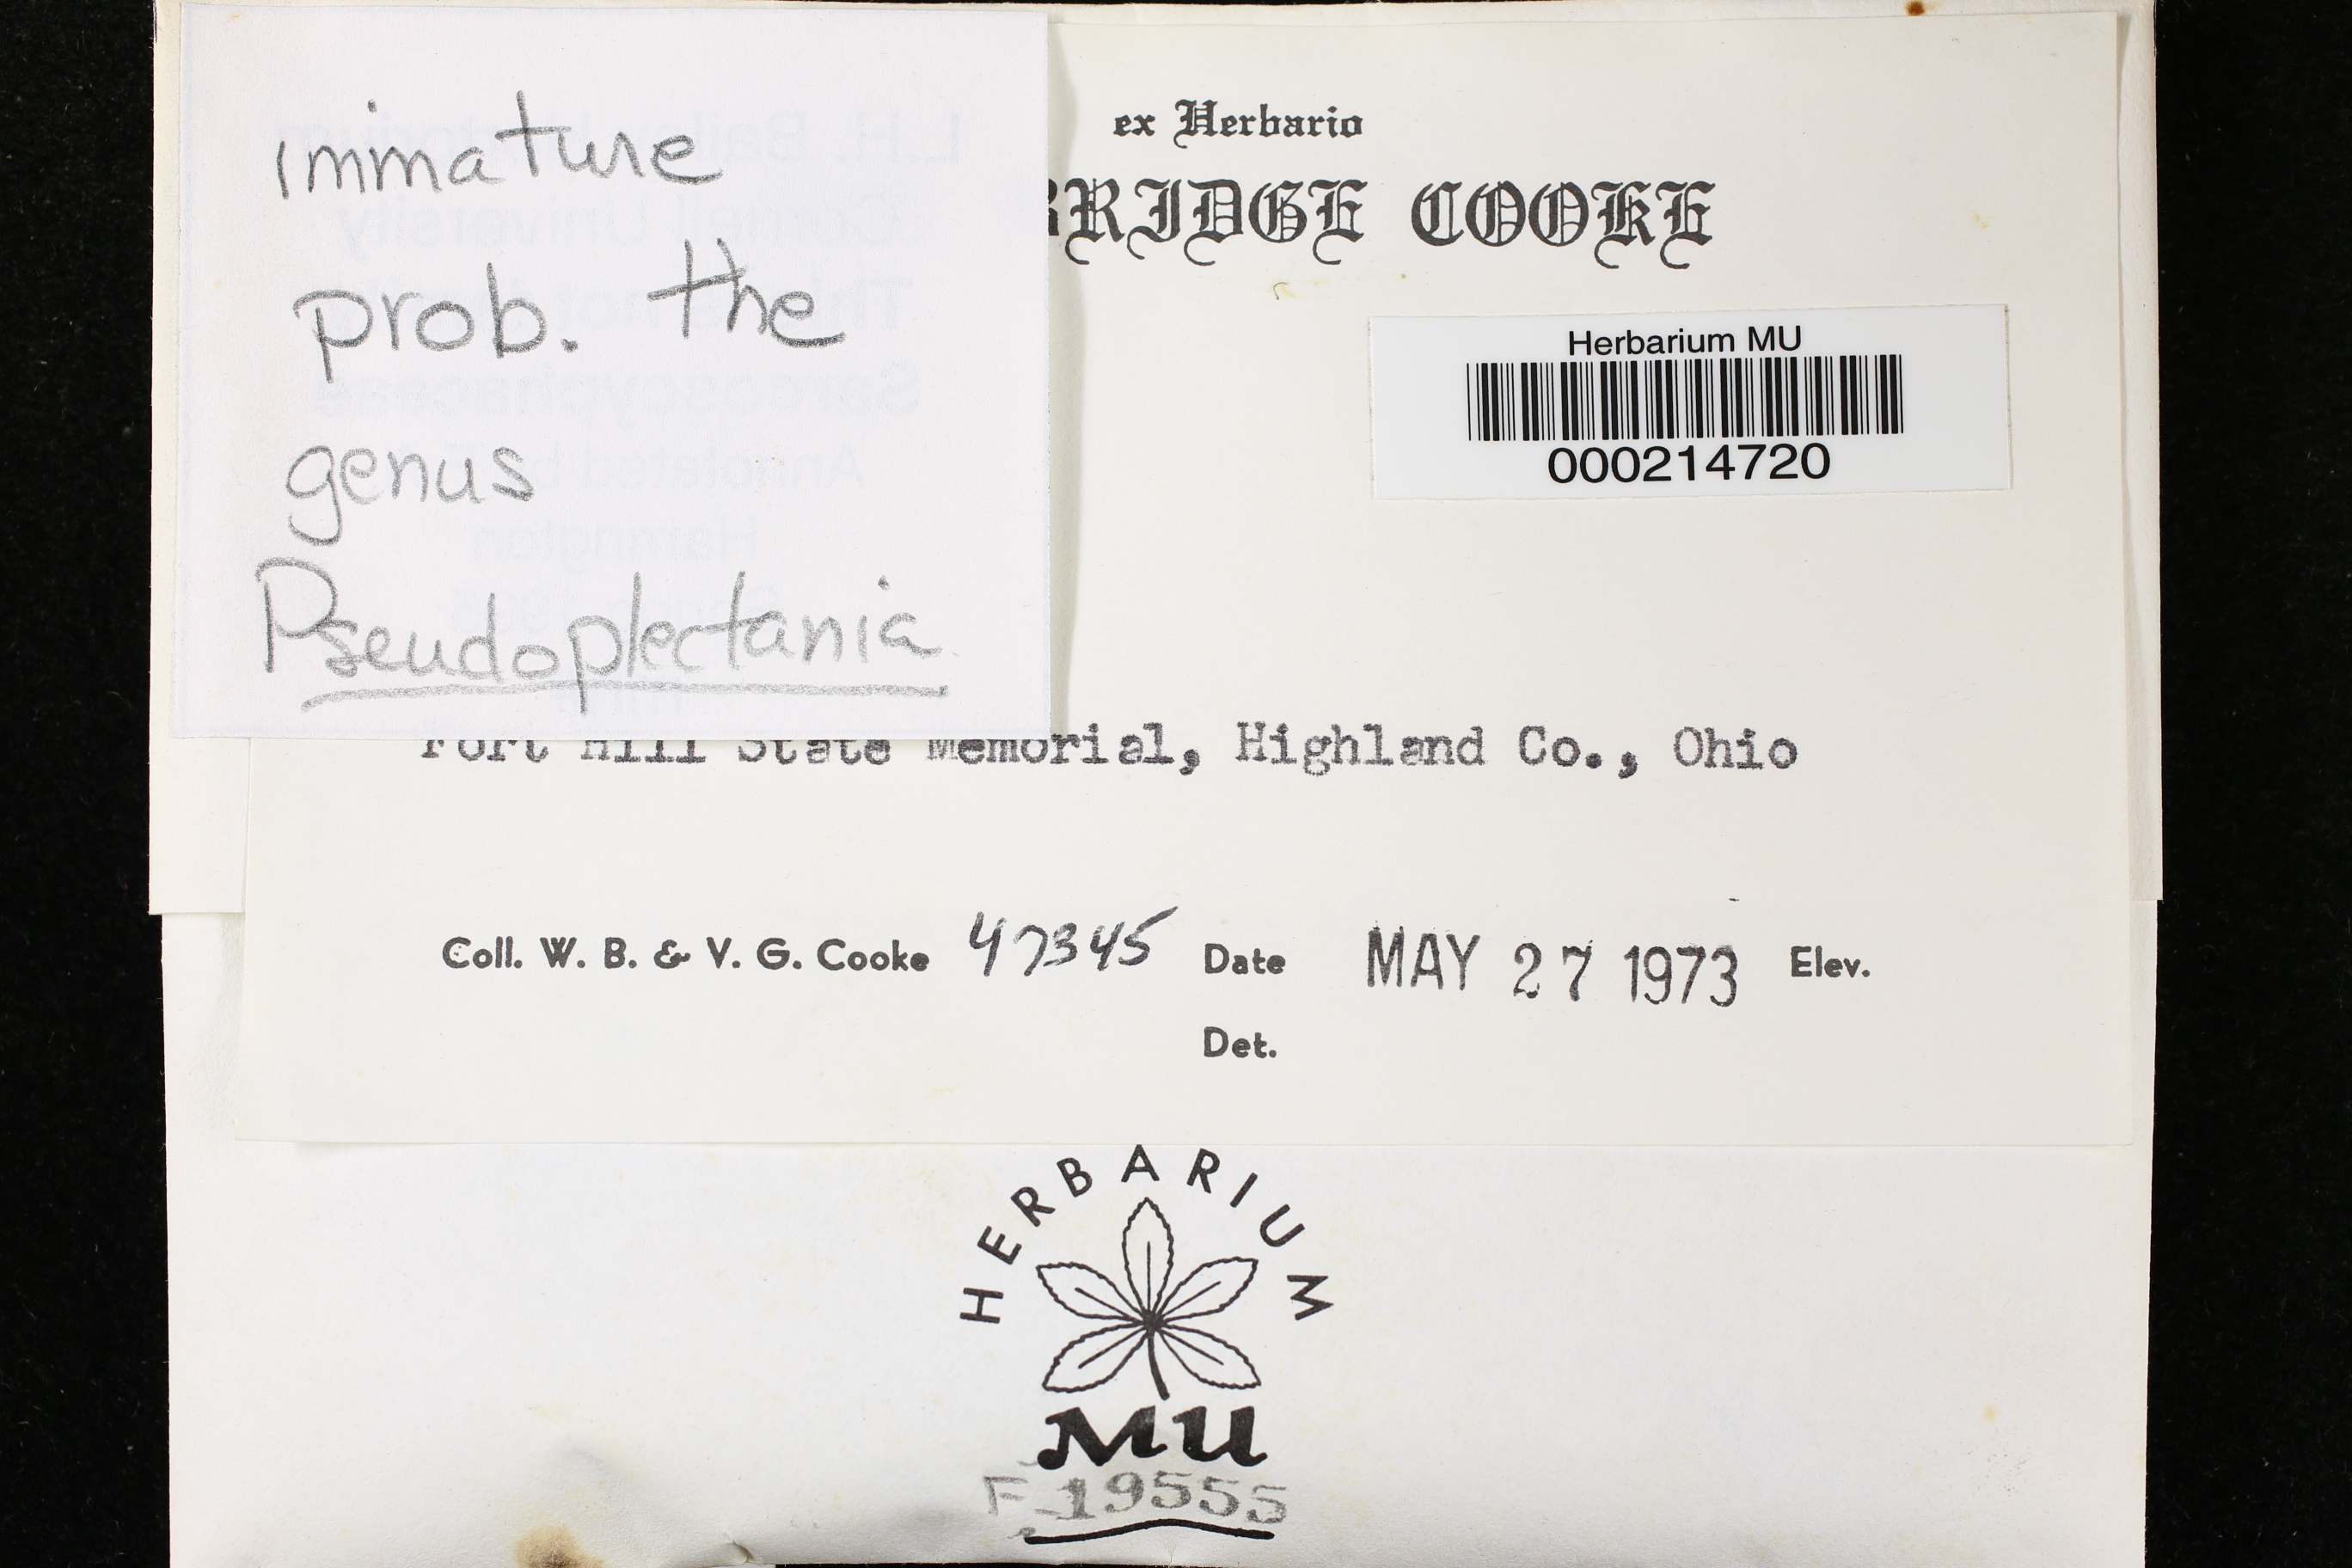 immature
prob. the
genus
Pseudoplectania
ex Herbario
BRIDGE COOKE
Herbarium MU
000214720
Fort Hill State Memorial, Highland Co., Ohio
Coll. W. B. & V. G. Cooke 47345 Date MAY 27 1973 Elev.
Det.
HERBARIUM
MU
F 19555